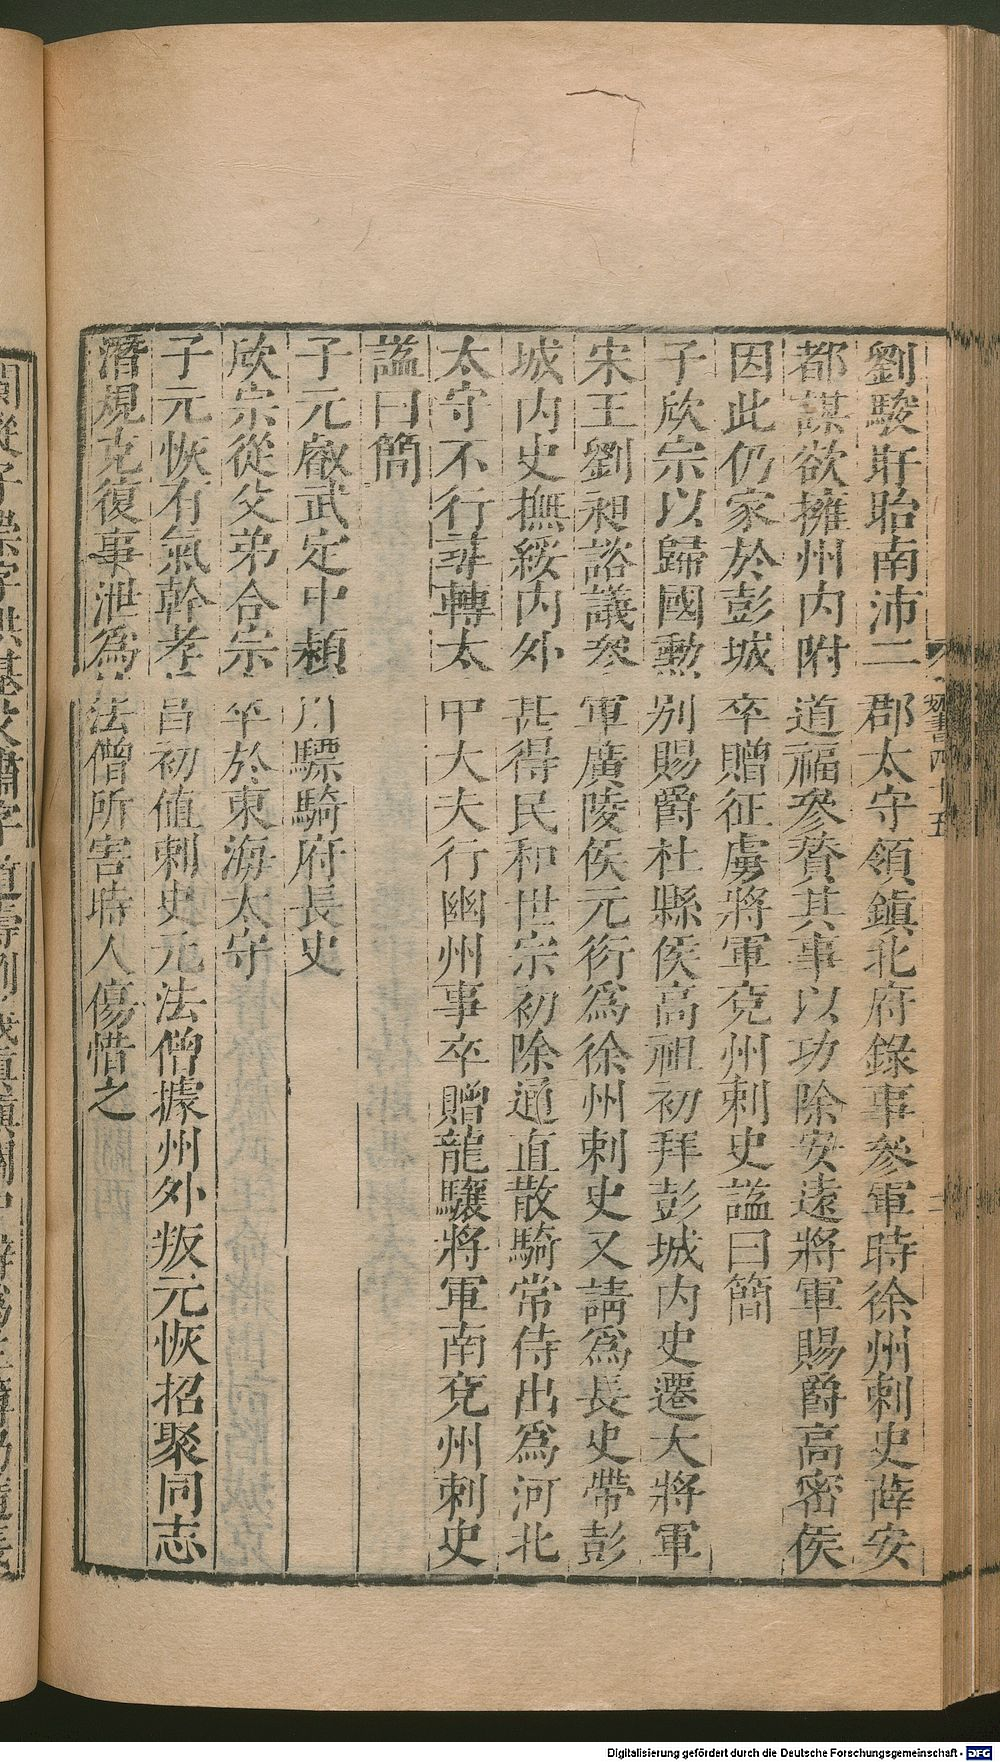 劉駿盱眙南沛二郡太守領鎮北府錄事參軍時徐州刺史薛安
都謀欲擁州內附道福參贊其事以功除安遠將軍賜爵高密侯
因此仍家於彭城卒贈征虜將軍兗州刺史謚曰簡
子欣宗以歸國勳別賜爵杜縣侯高祖初拜彭城內史遷大將軍
宋王劉昶諮議參軍廣陵侯元衍為徐州刺史又請為長史帶彭
城內史撫綏內外甚得民和世宗初除通直散騎常侍出為河北
太守不行尋轉太中大夫行幽州事卒贈龍驤將軍南兗州刺史
謚曰簡
子元叡武定中潁川驃騎府長史
欣宗從父弟合宗卒於東海太守
子元恢有氣幹孝昌初值刺史元法僧據州外叛元恢招聚同志
潛規克復事泄為法僧所害時人傷惜之
魏書四十五
Digitalisierung gefördert durch die Deutsche Forschungsgemeinschaft - DFG